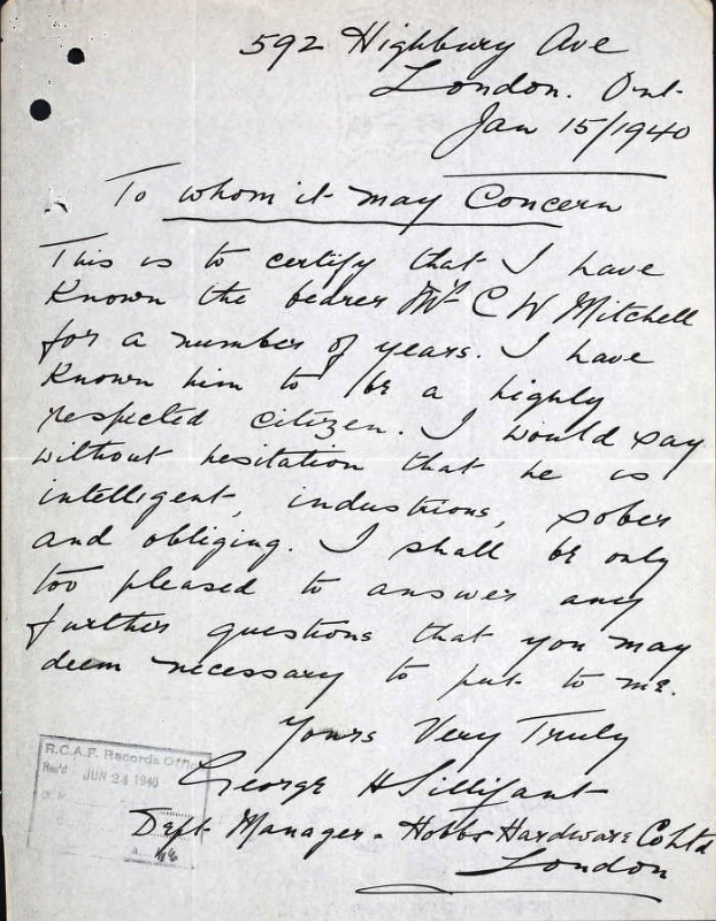 592 Highbury Ave
London. Ont-
Jan 15/1940
To whom it may Concern
This is to certify that I have
Known the bearer Mr C W Mitchell
for a number of years. I have
Known him to be a highly
respected citizen. I would say
without hesitation that he is
intelligent, industrious, sober
and obliging. I shall be only
too pleased to answer any
further questions that you may
deem necessary to put to me.
Yours Very Truly
George H Sillifant
Dept Manager - Hobbs Hardware Co Ltd
London
R.C.A.F. Records Office
Rec'd JUN 24 1940